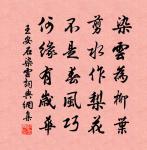 染雲為柳葉
剪水作梨花
不是春風巧
何緣有歲華
王安石染雲詞與網集